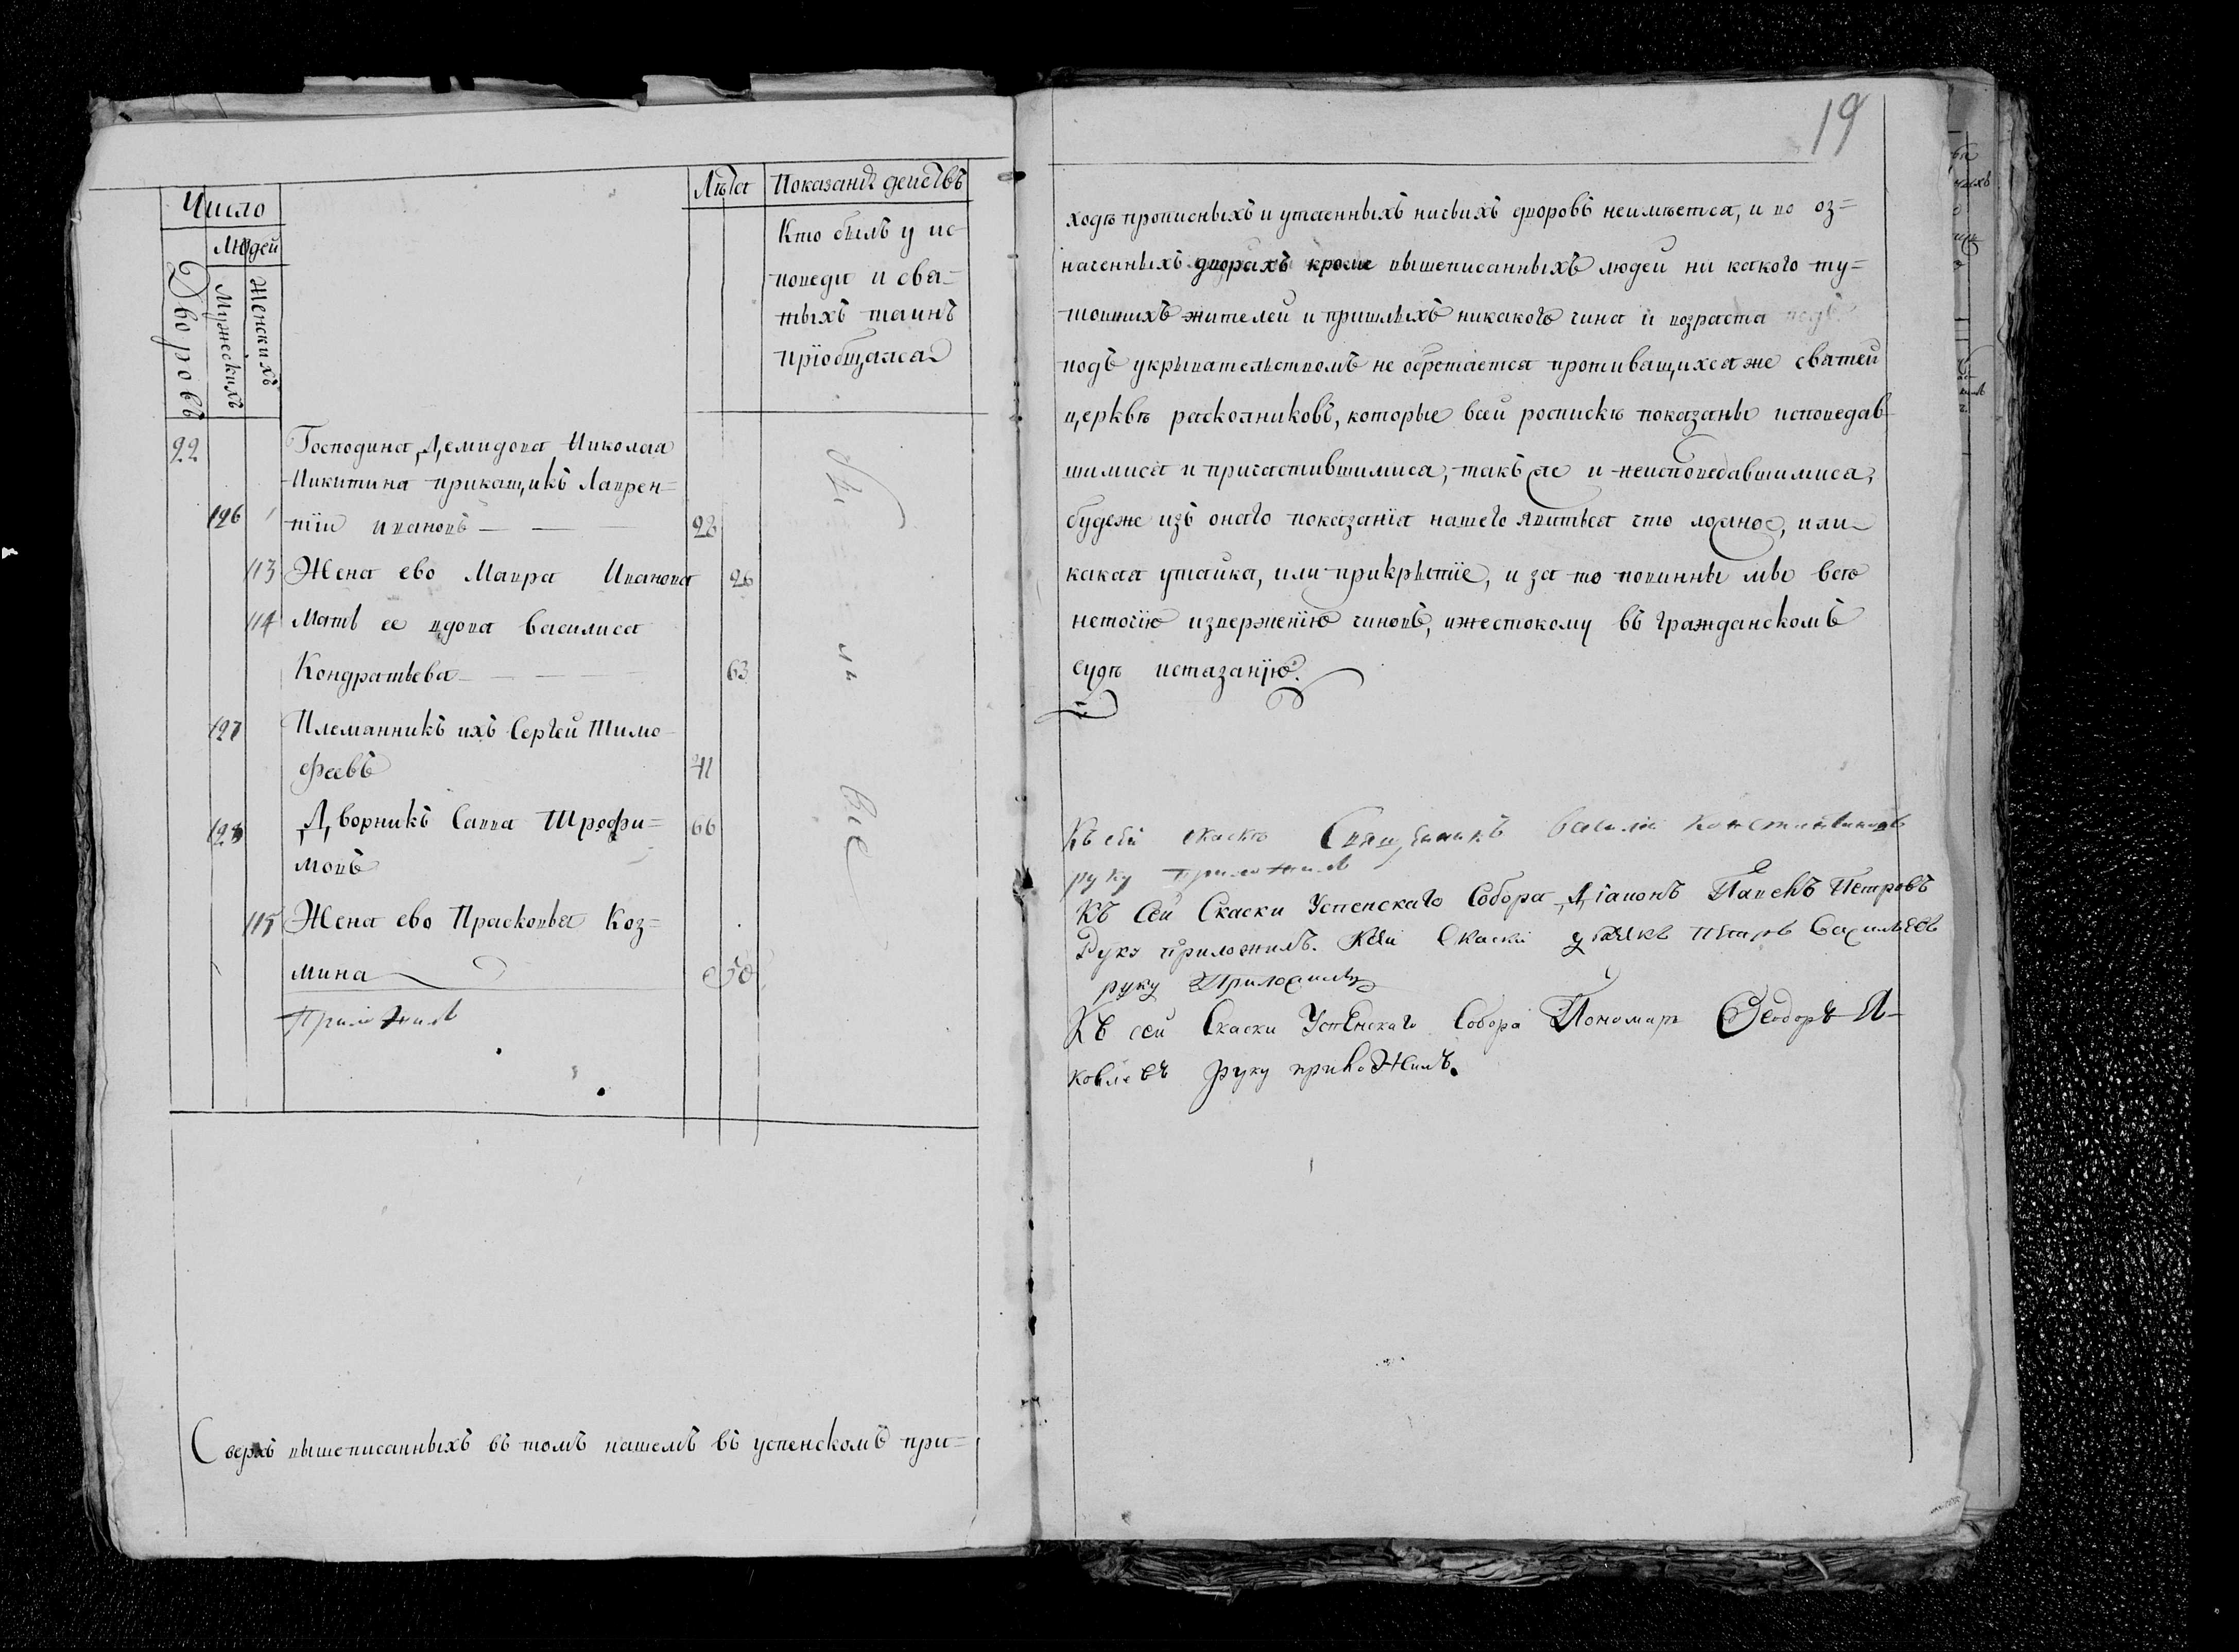 Число
Людей
Дворовъ
Мужескихъ
Женскихъ
Лѣта
Показанiѣ действъ
Кто былъ у ис=
поведи и свя=
тыхъ таинъ
прїобщался
22
Господина Демидова Николая
Никитина прикащикъ Лаврен=
126
тїи Ивановъ
28
113 Жена ево Мавра Иванова 26
114 Мать ее вдова Василиса
Кондратьева 63
127 Племянникъ ихъ Сергей Тимо
феевъ
128 Дворникъ Савва Трофи= 66
мовъ
115 Жена ево Прасковья Коз=
мина 50
приложилъ
Все
Сверхъ вышеписанныхъ въ томъ нашемъ въ успенскомъ при=
19
ходѣ прописныхъ и утаенныхъ никихъ дворовъ неимѣется, и во оз=
наченныхъ дворахъ кроме вышеписанныхъ людей ни какого ту=
тошнихъ жителей и пришлыхъ никакого чина и возраста
подъ укрывательствомъ не обретается противящихся же святей
церквѣ расколниковъ, которые всей роспискѣ показаны исповедав
шимися и причастившимися, такъ же и неисповедавшимися,
будеже изъ онаго показанїя нашего явитьса что ложное, или
какая утайка, или прикрытїе, и за то повинны мы
изверженїю чиновъ, ижестокому въ гражданскомъ
судѣ истязанїю.
Къ сей скаскѣ Священникъ Василей Константиновъ
руку приложилъ
Къ Сей Скаски Успенскаго Собора Дїаконъ Павелъ Петровъ
Руку приложилъ. Ксеи Скаски дьячкъ Петръ Васильевъ
руку Приложилъ
Къ сей Скаски Успенскаго Собора Пономарь Феодоръ Я=
ковлевъ руку приложилъ.